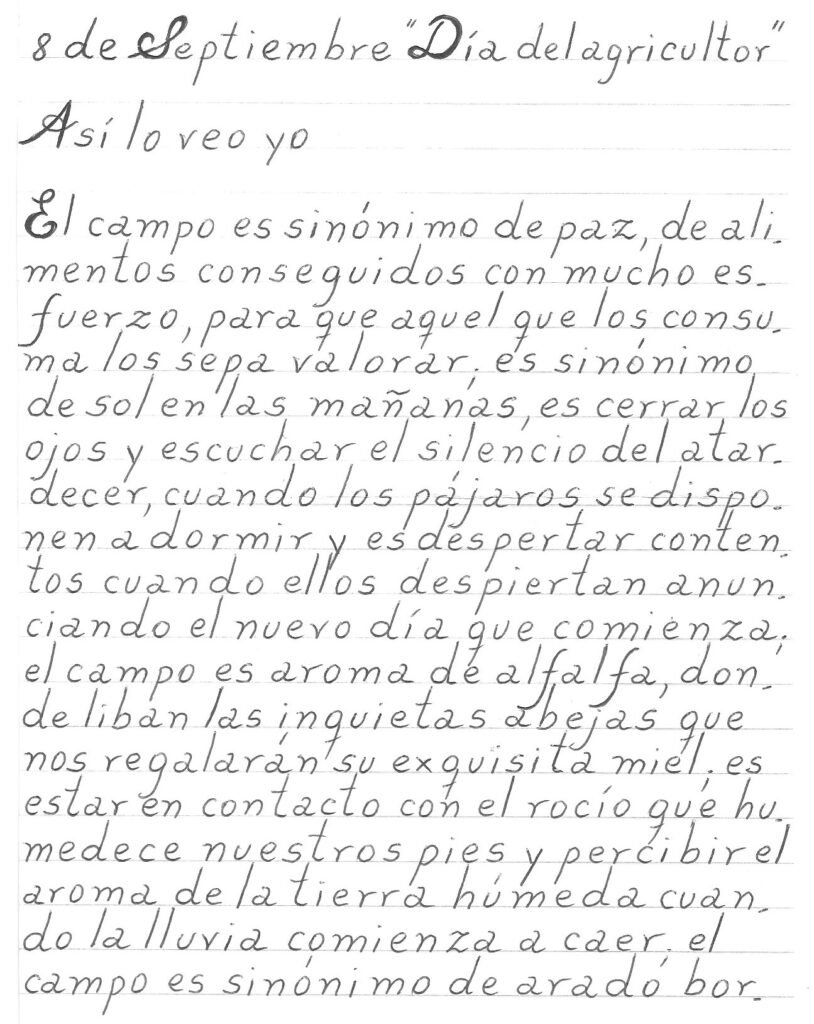 8 de Septiembre "Día del agricultor"
Así lo veo yo
El campo es sinónimo de paz, de ali-
mentos conseguidos con mucho es-
fuerzo, para que aquel que los consu-
ma los sepa valorar; es sinónimo
de sol en las mañanas, es cerrar los
ojos y escuchar el silencio del atar-
decer, cuando los pájaros se dispo-
nen a dormir y es despertar conten-
tos cuando ellos despiertan anun-
ciando el nuevo día que comienza;
el campo es aroma de alfalfa, don-
de liban las inquietas abejas que
nos regalarán su exquisita miel; es
estar en contacto con el rocío que hu-
medece nuestros pies y percibir el
aroma de la tierra húmeda cuan-
do la lluvia comienza a caer; el
campo es sinónimo de arado bor-